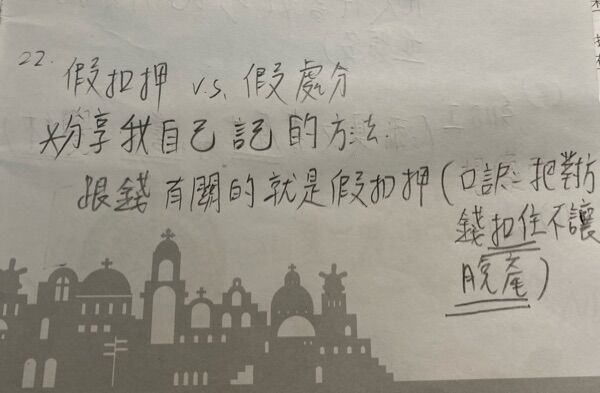 22.
假扣押 v.s. 假處分
*分享我自己記的方法.
跟錢有關的就是假扣押(口訣:把對方
錢扣住不讓
脫產)